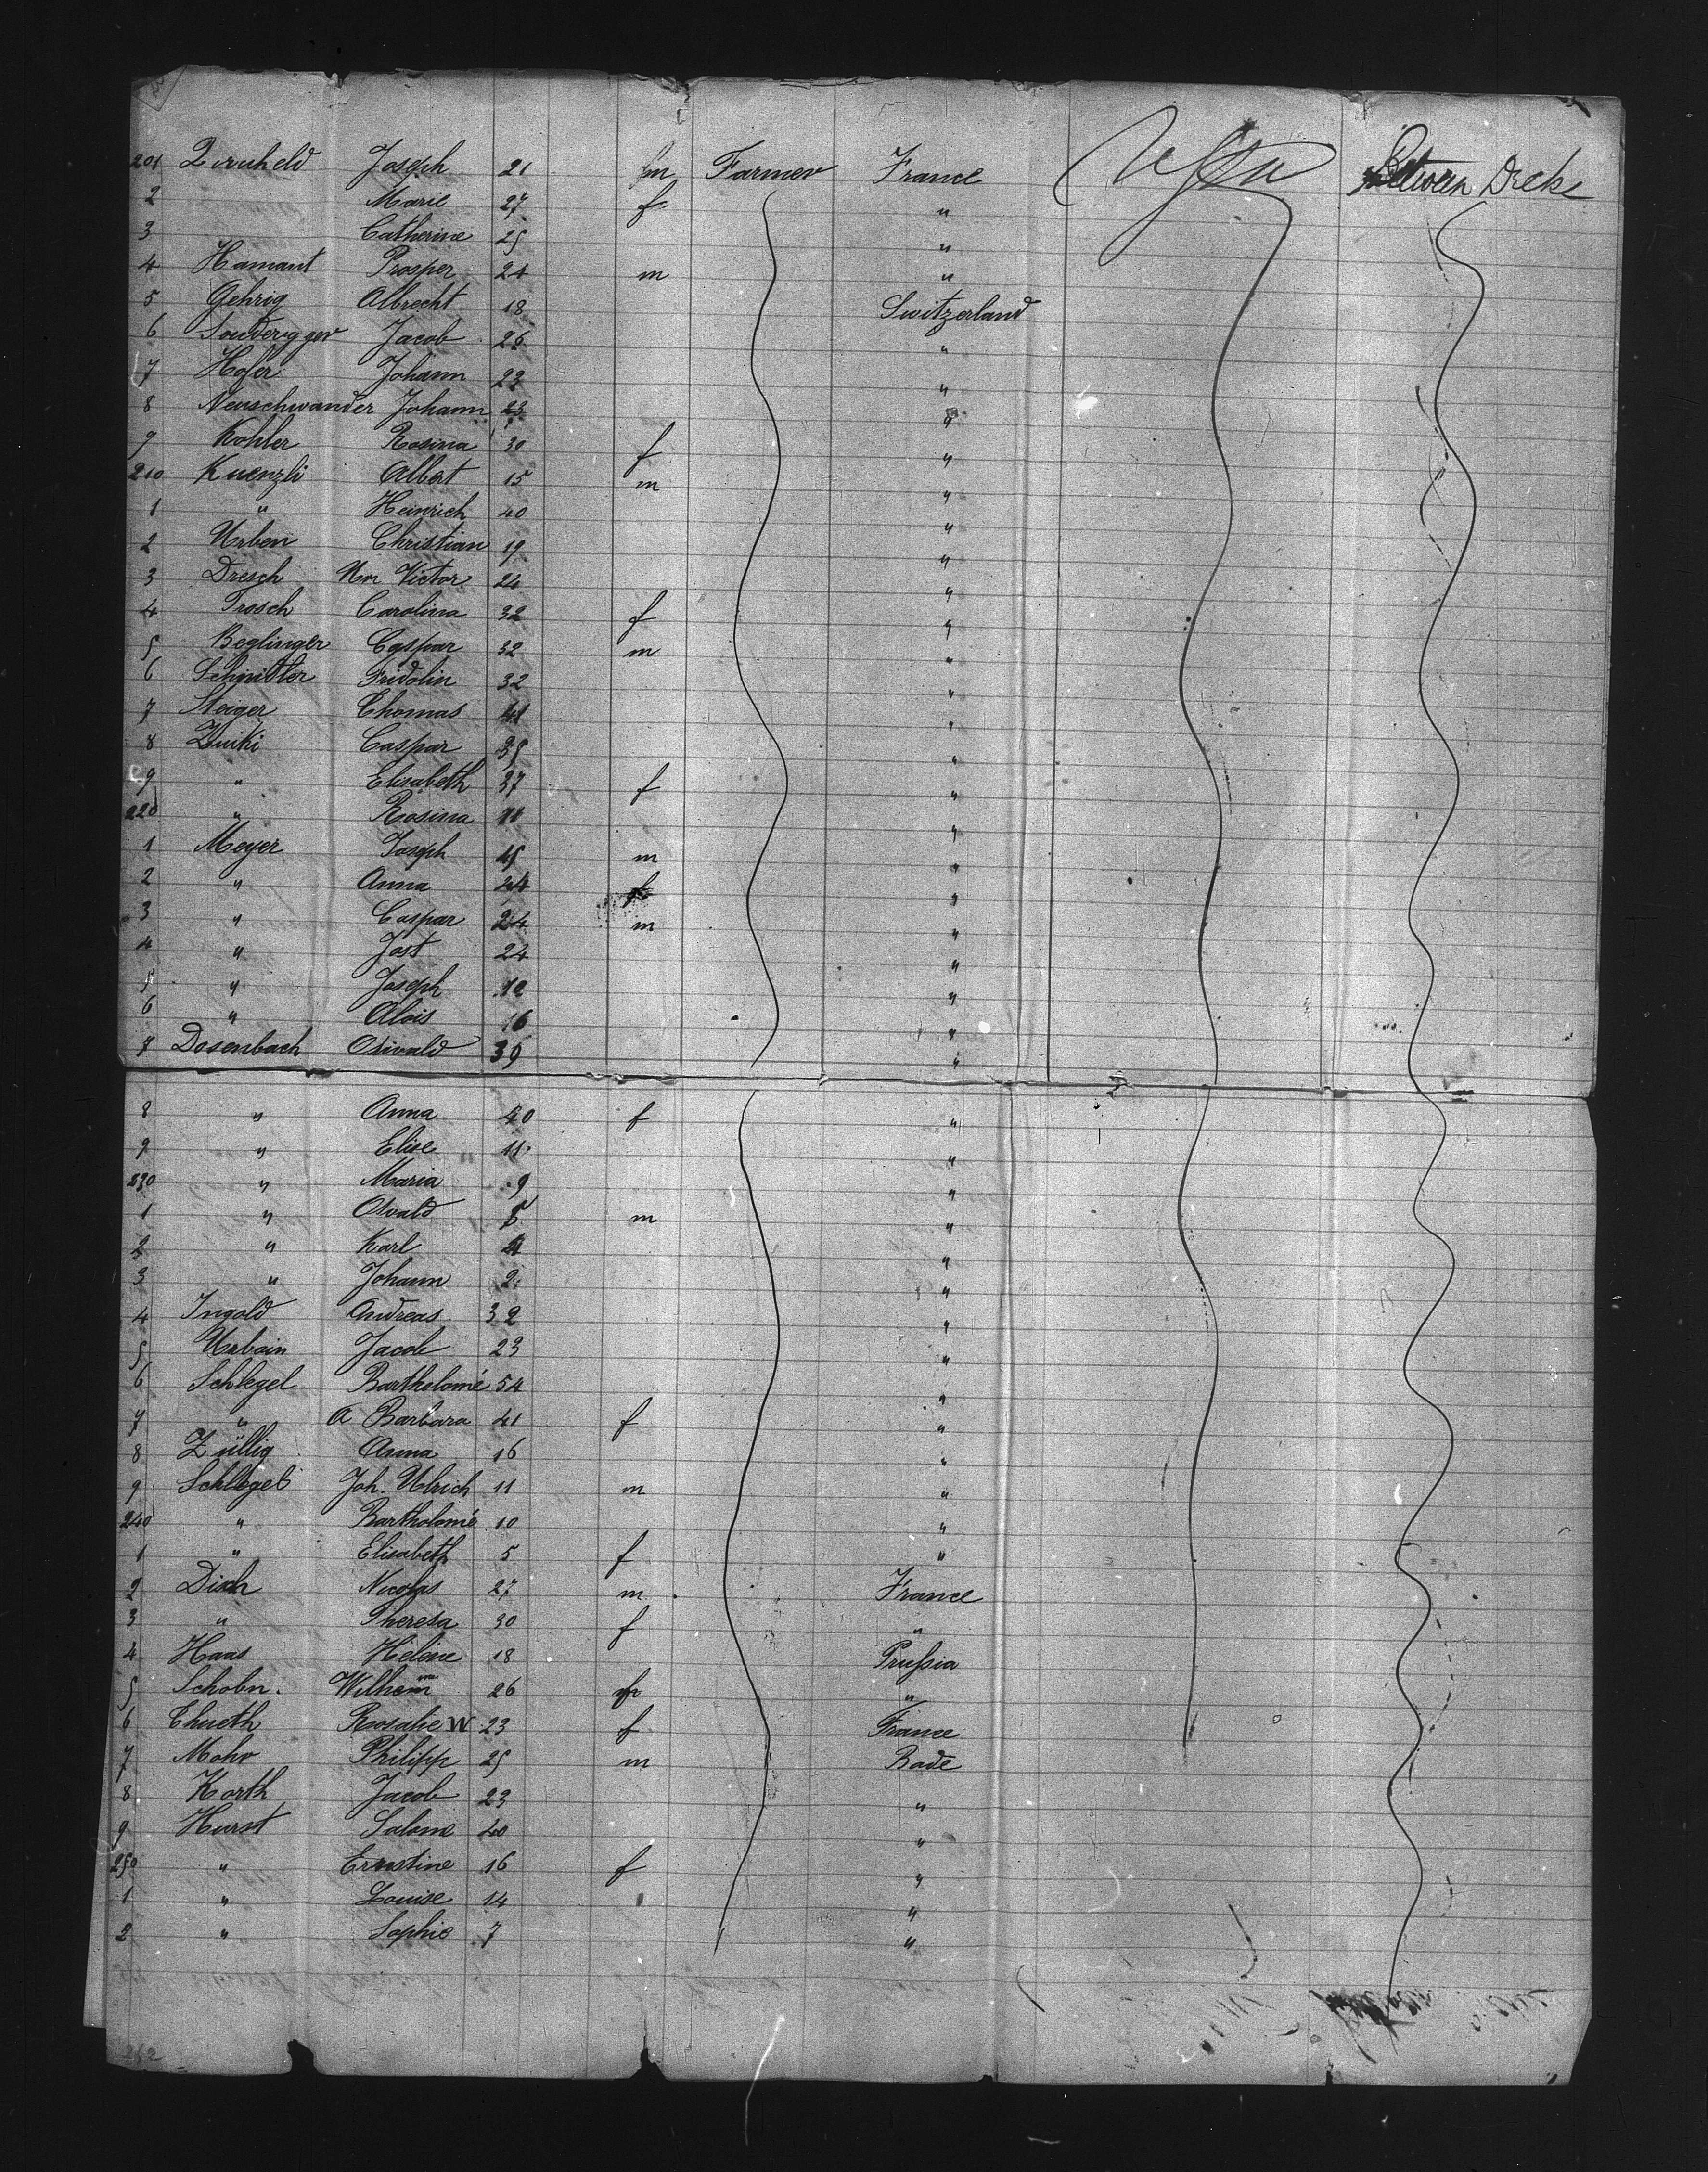 201 Zirnheld Joseph 21 m Farmer France USA Between Deck
2 Marie 27 f "
3 Catherine 25 "
4 Hamant Prosper 24 m "
5 Gehrig Albrecht 18 Switzerland
6 Sonderegger Jacob 26 "
7 Hofer Johann 23 "
8 Neuschwander Johann 23 "
9 Kohler Rosina 30 f "
210 Kuenzli Albert 15 m "
1 " Heinrich 40 "
2 Urben Christian 19 "
3 Dresch Victor 24 "
4 Trosch Carolina 32 f "
5 Beglinger Caspar 32 m "
6 Schnitler Fridolin 32 "
7 Steiger Thomas 41 "
8 Zwiki Caspar "
9 " Elisabeth 37 f "
220 " Rosina "
1 Meyer Joseph m "
2 " Anna 44 f "
3 " Caspar 24 m "
4 " Jost 24 "
5 " Joseph 12 "
6 " Alois 16 "
7 Dosenbach Oswald 39 "
8 " Anna 40 f "
9 " Elise 11 "
230 " Maria 9 "
1 " Osvald 5 m "
2 " Karl 4 "
3 " Johann 2 "
4 Ingold Andreas 32 "
5 Urbain Jacob 23 "
6 Schlegel Bartholomé 54 "
7 " A Barbara 41 f "
8 Züllig Anna 16 "
9 Schlegel Joh. Ulrich 11 m "
240 " Bartholomé 10 "
1 " Elisabeth 5 f "
2 Disch Nicolas 27 m France
3 " Theresa 30 f "
4 Haas Hélène 18 Prussia
5 Schobn. Wilhem 26 m "
6 Thueth Rosalie W 23 f France
7 Mohr Philipp 25 m Bade
8 Korth Jacob 23 "
9 Hurst Salome 40 "
250 " Ernstine 16 f "
1 " Louise 14 "
2 " Sophie 7 "
252